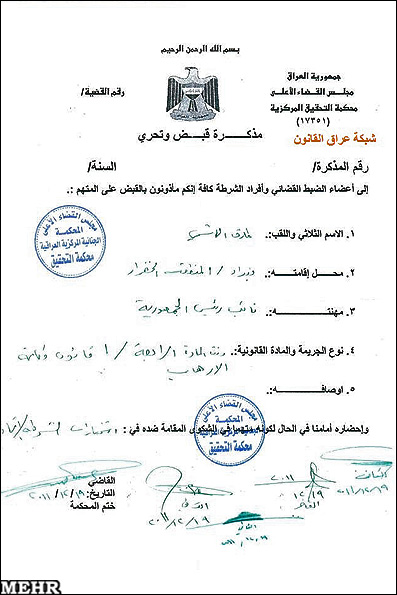 بسم الله الرحمن الرحيم
جمهورية العراق
مجلس القضاء الأعلى
رقم القضية/
محكمة التحقيق المركزية
(١٧٣٥١)
شبكة عراق القانون
مذكرة قبض وتحري
رقم المذكرة/
السنة/
إلى أعضاء الضبط القضائي وأفراد الشرطة كافة إنكم مأذونون بالقبض على المتهم :.
مجلس القضاء الأعلى
المحكمة
الجنائية المركزية العراقية
محكمة التحقيق
١. الاسم الثلاثي واللقب:. طارق الهاشمي
٢. محل إقامته:. بغداد / المنطقة الخضراء
٣. مهنته:. نائب رئيس الجمهورية
٤. نوع الجريمة والمادة القانونية:. وفق المادة الرابعة / ١ قانون مكافحة
الارهاب
٥. اوصافه:.
مجلس القضاء الأعلى
المحكمة
محكمة التحقيق
وإحضاره أمامنا في الحال لكونه متهما في الشكوى المقامة ضده في :.
القاضي
التاريخ: ٢٠١١/١٢/١٩
ختم المحكمة
٢٠١١
١٢/١٩
٢٠١١/١٢/١٩
٢٠١١/١٢/١٩
MEHR